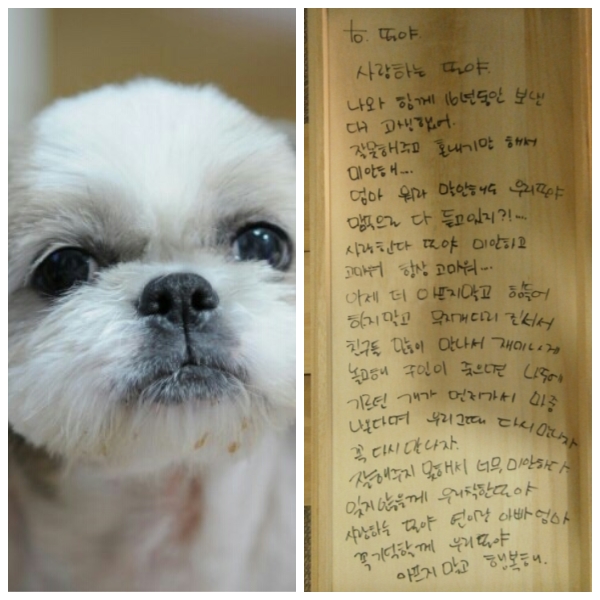 to. 또야.
사랑하는 또야.
나와 함께 16년동안 보낸
다 고생했어.
잘못해주고 혼내기만 해서
미안해...
엄마 뭐라 말안해도 우리또야
맘속으로 다 듣고있지?!...
사랑한다 또야 미안하고
고마워 항상 고마워...
이제 더 아프지말고 힘들어
하지말고 무지개다리 건너서
친구들 많이 만나서 재미나게
놀고 주인이 죽으면 나중에
기르던 개가 먼저가서 마중
나온다며 우리그때 다시만나자
꼭 다시 만나자.
잘해주지 못해서 너무 미안하다
잊지않을께 우리착한또야
사랑하는 또야 언아랑 아빠엄마
꼭기억할께 우리또야
아프지 말고 행복해.